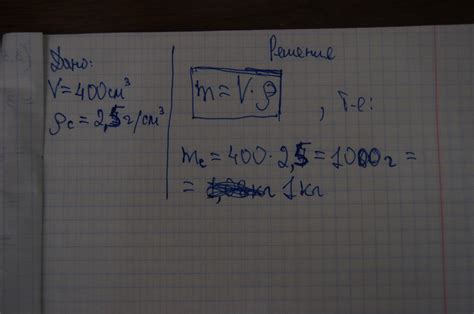 Дано:
V = 400 см³
ρс = 2,5 г/см³
Решение
m = V · ρ
, т.е:
mс = 400 · 2,5 = 1000 г =
= 1 кг